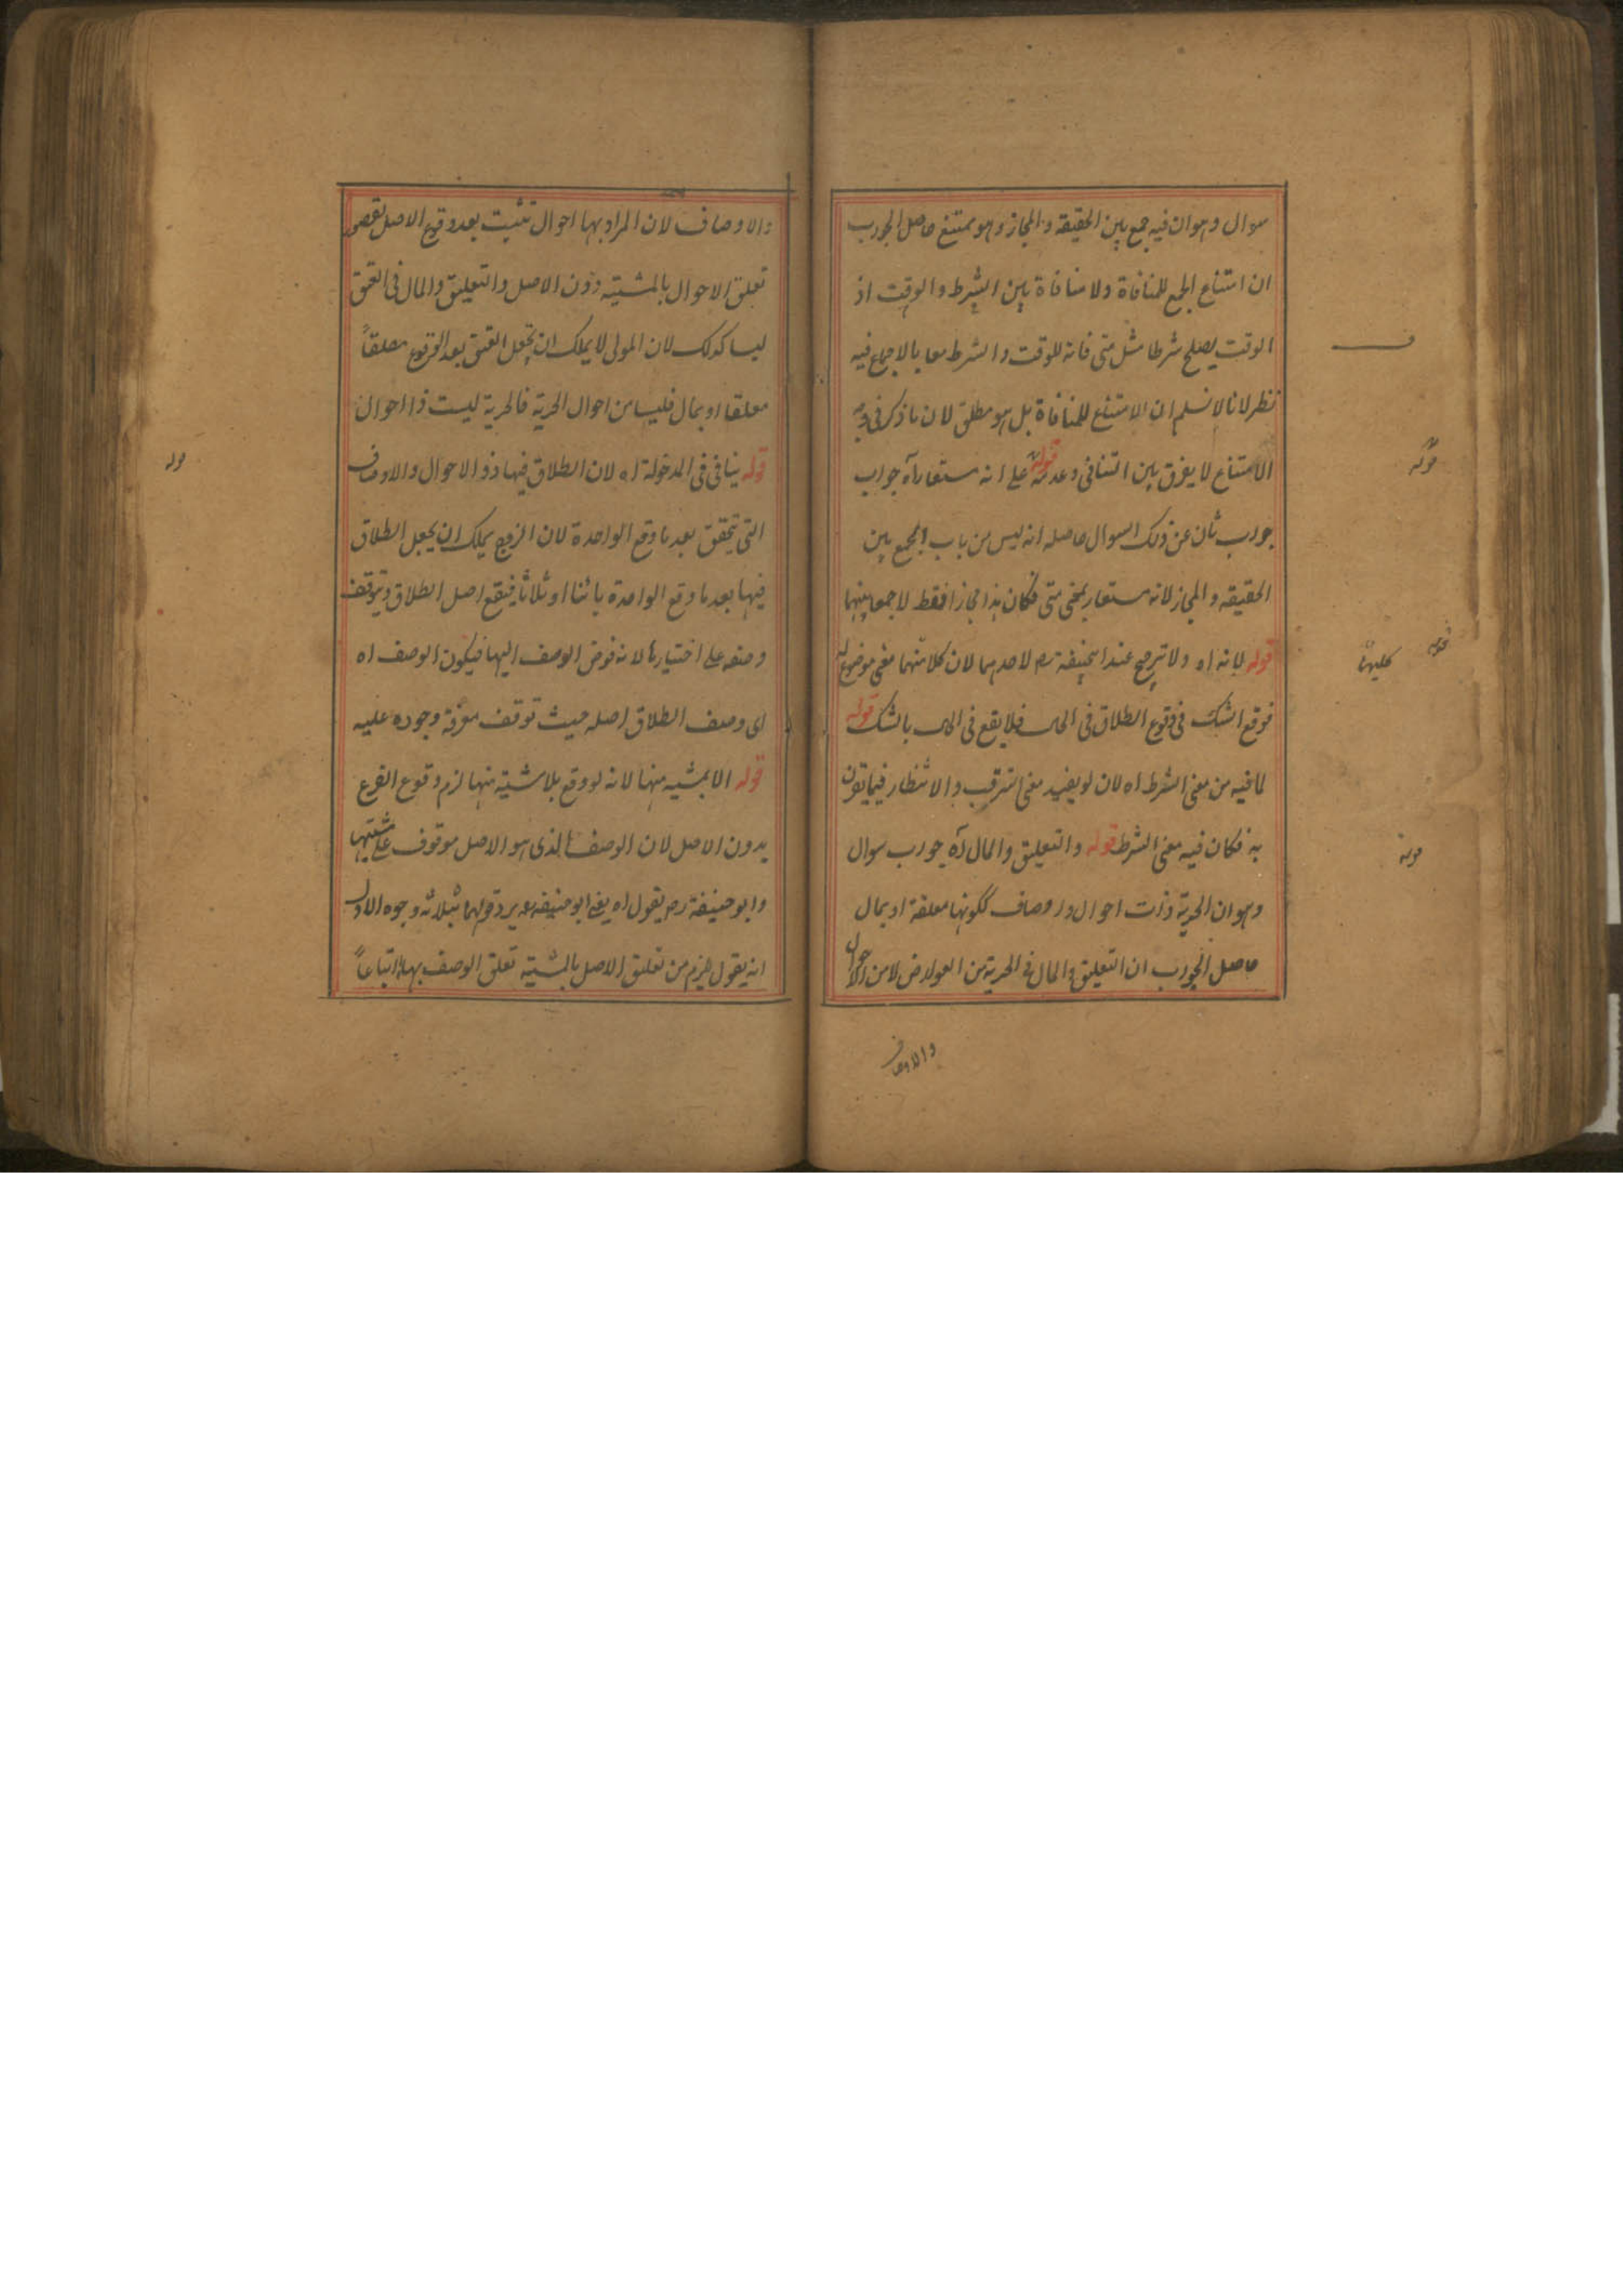 سوال وهو ان فيه جمع بين الحقيقة والمجاز وهو ممتنع حاصل الجواب
ان امتناع الجمع للمنافاة ولا منافاة بين الشرط والوقت اذ
الوقت يصلح شرطا مثل متى فانه للوقت والشرط معا بالاجماع فيه
نظر لانا لا نسلم ان الامتناع للمنافاة بل هو مطلق لان ما ذكر فى وجه
الامتناع لا يفرق بين التنافى وعدمه قوله على انه مستعار آه جواب
جواب ثان عن ذلك السوال حاصله انه ليس من باب الجمع بين
الحقيقة والمجاز لانه مستعار بمعنى متى فكان هذا مجازا فقط لا جمعا بينهما
قوله لانه اه ولا ترجح عند ابيحنيفة رح لاحدهما لان كلا منهما معنى موضوع له
فوقع الشك فى وقوع الطلاق فى الحال فلا يقع فى الحال بالشك قوله
لما فيه من معنى الشرط اه لان لو يفيد معنى الترقب والانتظار فيما تقرن
به فكان فيه معنى الشرط قوله والتعليق والمال آه جواب سوال
وهو ان الحرية ذات احوال واوصاف ككونها معلقة او بمال
حاصل الجواب ان التعليق والمال فى الحرية من العوارض لا من الاحوال
والاوصاف
قوله
قوله
كليهما
قوله
والاوصاف لان المراد بها احوال تثبت بعد وقوع الاصل
تعلق الاحوال بالمشية دون الاصل والتعليق والمال فى العتق
ليسا كذلك لان المولى لا يملك ان يجعل العتق بعد الوقوع مطلقاً
معلقا او بمال فليسا من احوال الحرية فالحرية ليست ذا احوال
قوله ينافى فى المدخولة اه لان الطلاق فيها ذو الاحوال والاوصاف
التى تتحقق بعد ما وقع الواحدة لان الزوج يملك ان يجعل الطلاق
فيها بعد ما وقع الواحدة بائنا او ثلاثا فيقع اصل الطلاق ويتوقف
وصفه على اختيارها لانه فوض الوصف اليها فيكون الوصف اه
اى وصف الطلاق اصله حيث توقف معرفة وجوده عليه
قوله الا بمشية منها لانه لو وقع بلا مشية منها لزم وقوع الفرع
بدون الاصل لان الوصف الذى هو الاصل موقوف على مشيتها
وابو حنيفة رح يقول اه يعنى ابو حنيفة يرد قولهما بثلاثه وجوه الاول
انه يقول يلزم من تعليق الاصل بالمشية تعلق الوصف بها اتباعاً
قوله